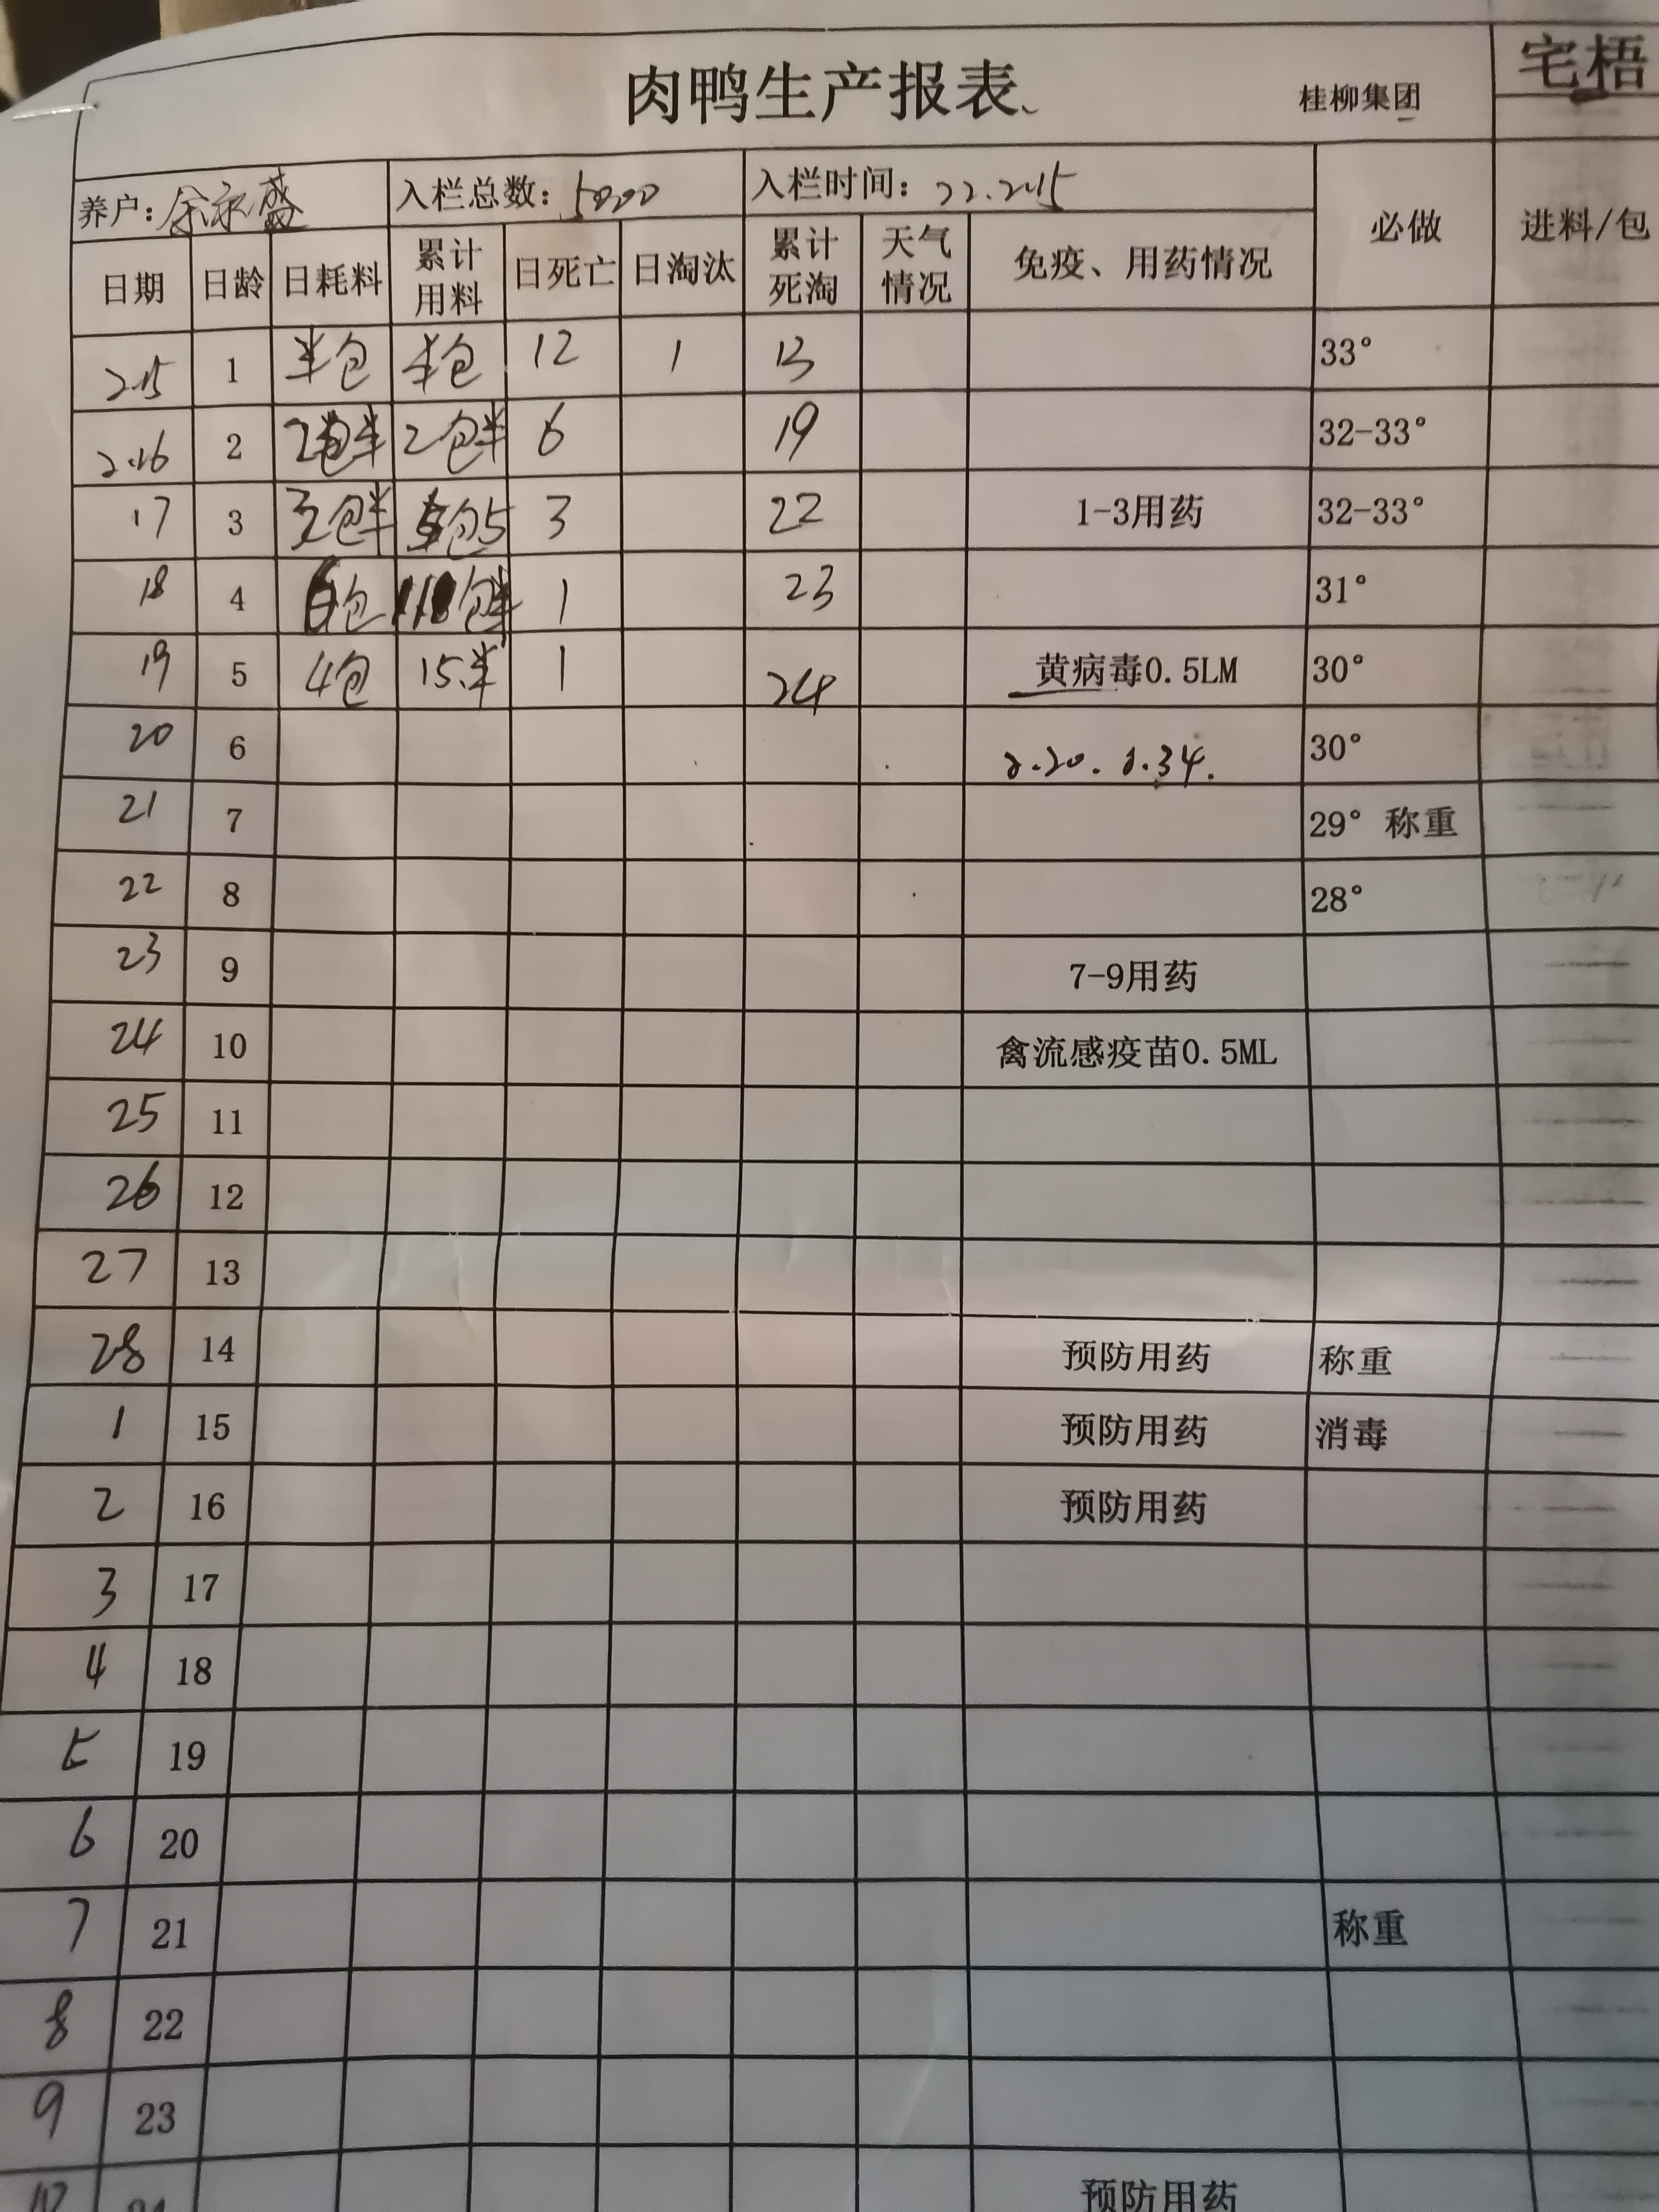 宅梧
肉鸭生产报表 桂柳集团
养户: 余永盛 入栏总数: 5000 入栏时间: 22.2.15 必做 进料/包
日期 日龄 日耗料 累计用料 日死亡 日淘汰 累计死淘 天气情况 免疫、用药情况
2.15 1 半包 半包 12 1 13 33°
2.16 2 2包半 6 19 32-33°
17 3 3 22 1-3用药 32-33°
18 4 6包 1 23 31°
19 5 4包 15.半 1 24 黄病毒0.5LM 30°
20 6 2.20. 30°
21 7 29° 称重
22 8 28°
23 9 7-9用药
24 10 禽流感疫苗0.5ML
25 11
26 12
27 13
28 14 预防用药 称重
1 15 预防用药 消毒
2 16 预防用药
3 17
4 18
5 19
6 20
7 21 称重
8 22
9 23
预防用药